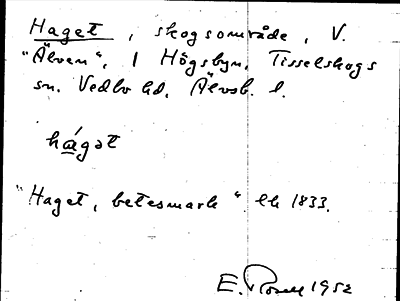 Haget, skogsområde, V.
"Älven", 1 Högsbyn. Tisselskogs
sn. Vedbo hd. Älvsb. l.
hágat
"Haget, betesmark" lh 1833.
E. Rosell 1952